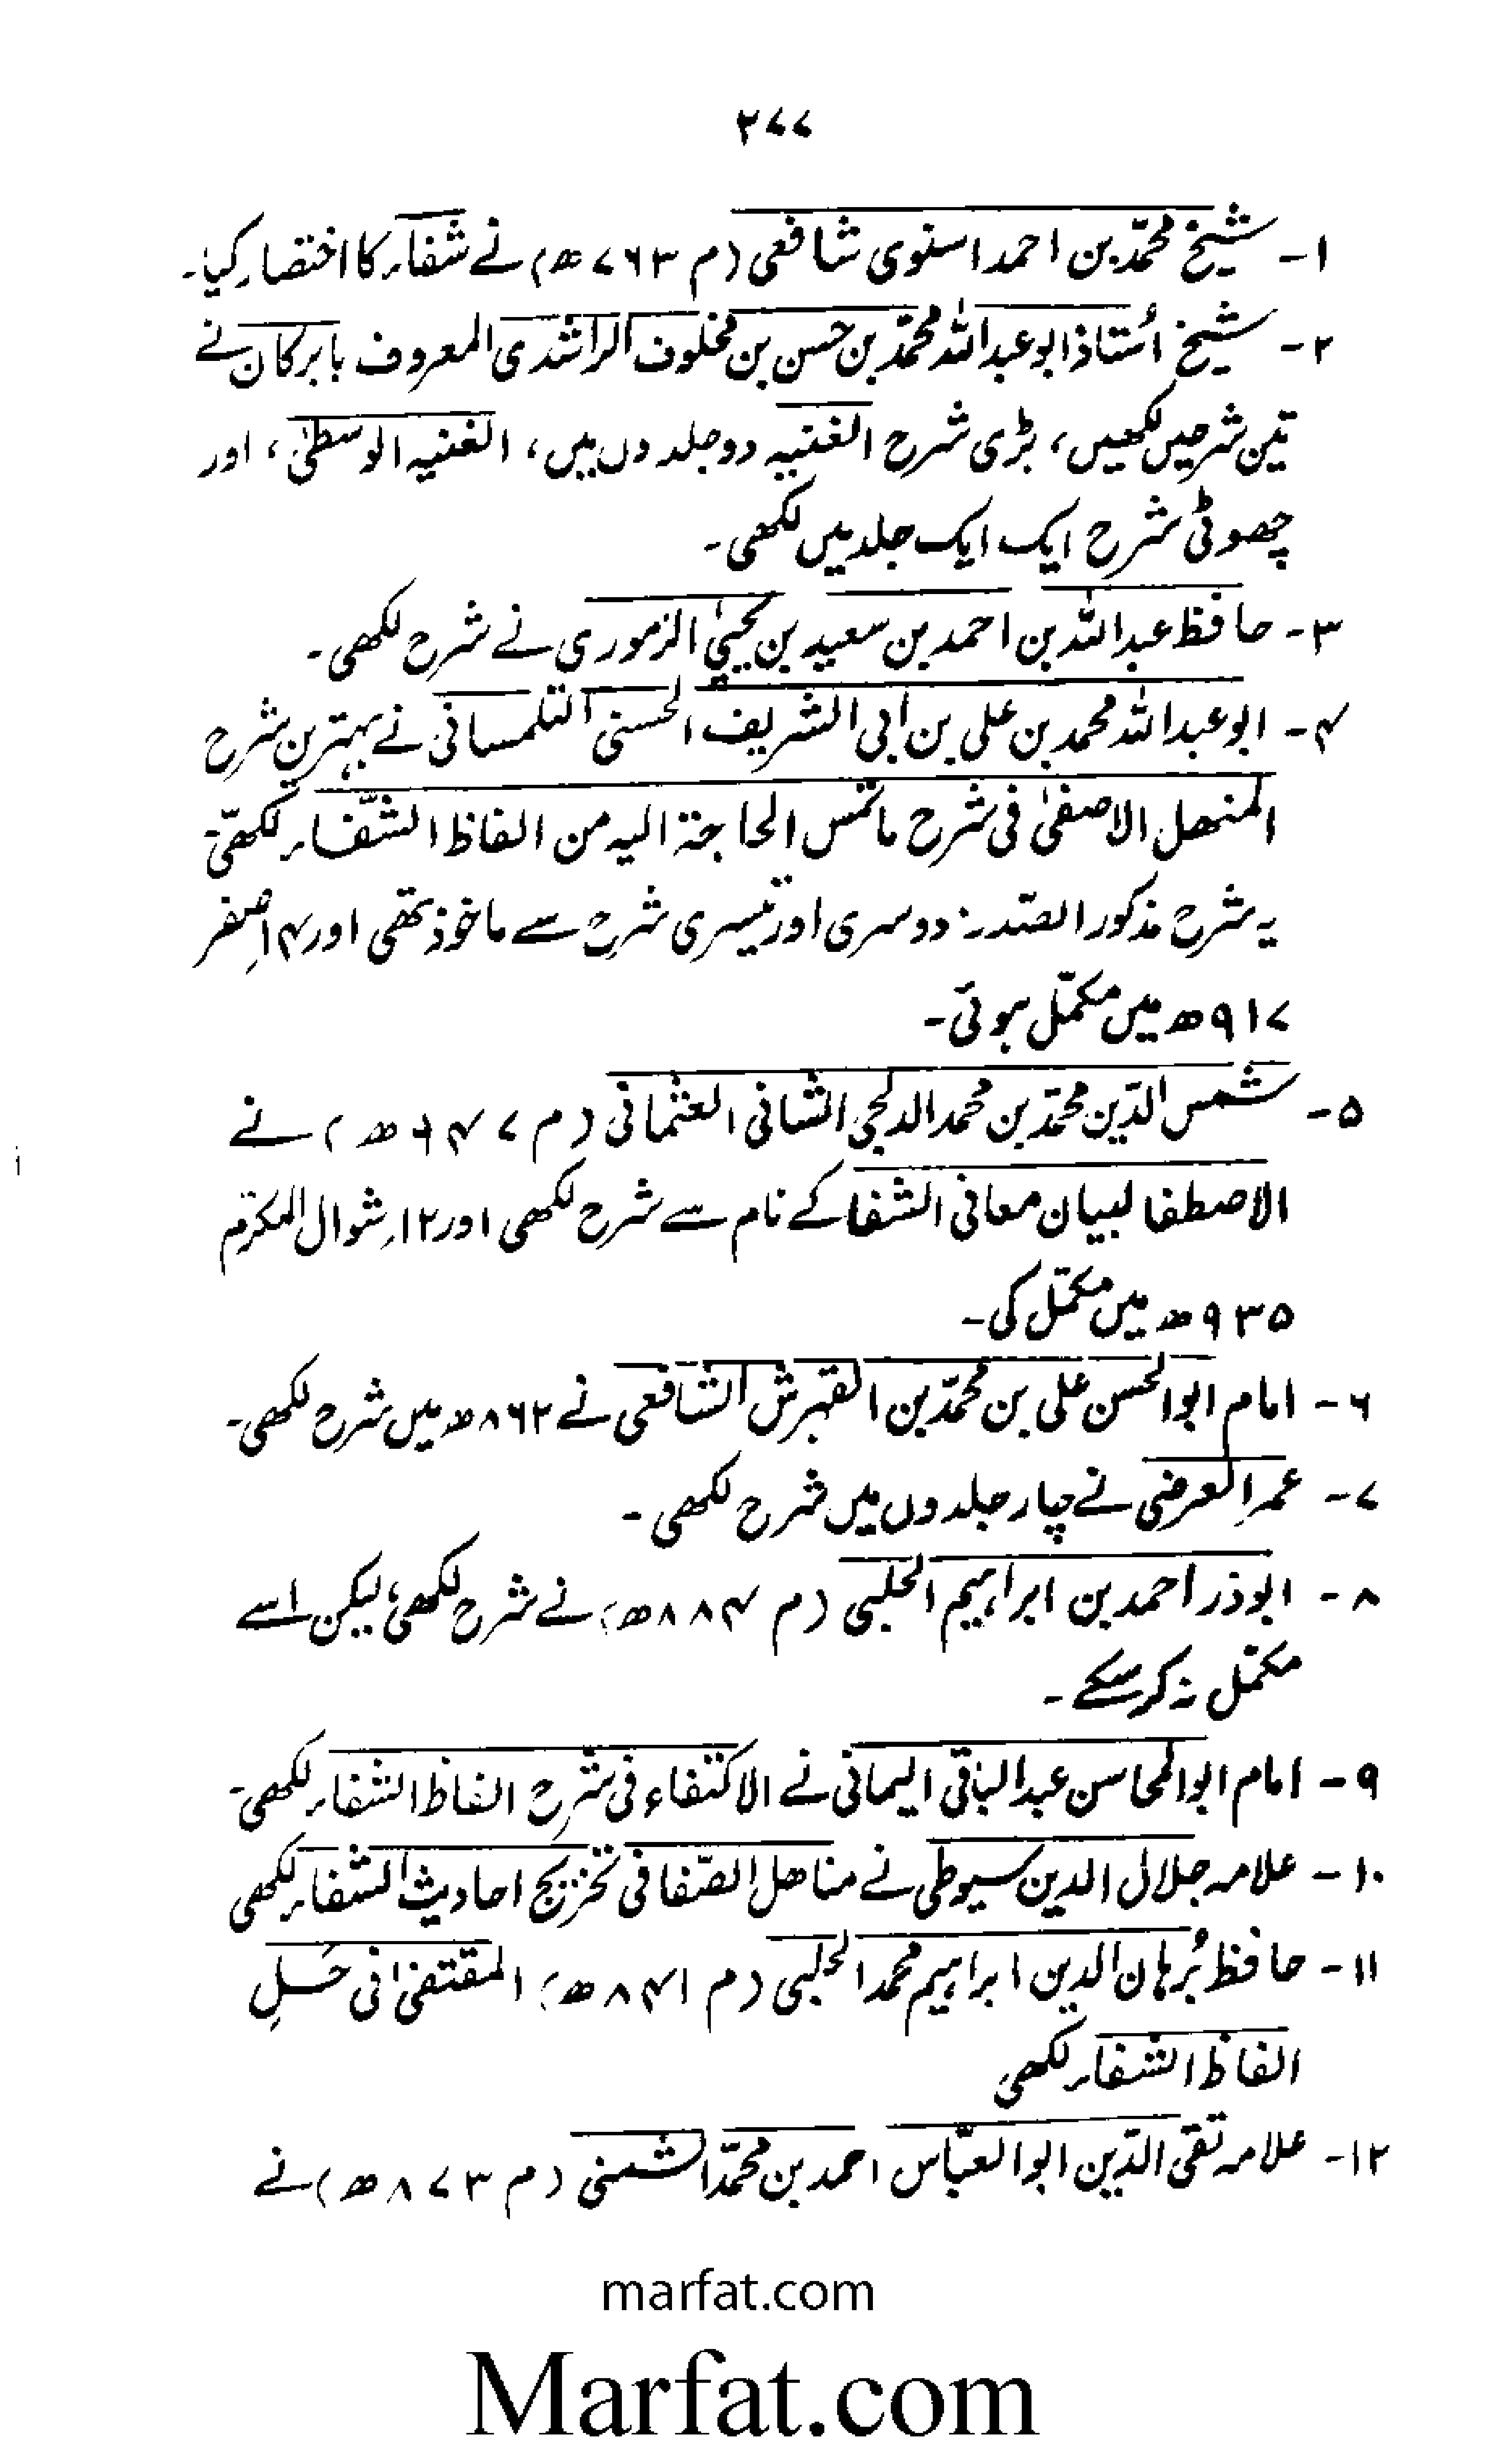 ۲۷۷
۱- شیخ محمّد بن احمد اسنوی شافعی (م ۷۶۳ھ) نے شفاء کا اختصار کیا۔
۲- شیخ اُستاذ ابوعبداللہ محمّد بن حسن بن مخلوف الراشدی المعروف بابرکان نے
تین شرحیں لکھیں، بڑی شرح الغنیہ دو جلدوں میں، الغنیہ الوسطیٰ، اور
چھوٹی شرح ایک ایک جلد میں لکھی۔
۳- حافظ عبداللہ بن احمد بن سعید بن یحییٰ الزموری نے شرح لکھی۔
۴- ابوعبداللہ محمد بن علی بن ابی الشریف الحسنی التلمسانی نے بہترین شرح
المنھل الاصفیٰ فی شرح ماتمس الحاجۃ الیہ من الفاظ الشّفاء لکھی۔
یہ شرح مذکور الصّدر دوسری اور تیسری شرح سے ماخوذ تھی اور ۱۴ صفر
۹۱۷ھ میں مکمّل ہوئی۔
۵- شمس الدّین محمّد بن محمد الدلجی الشانی العثمانی (م ۹۴۷ھ) نے
الاصطفا لبیان معانی الشفا کے نام سے شرح لکھی اور ۱۲ شوال المکرّم
۹۳۵ھ میں مکمّل کی۔
۶- امام ابوالحسن علی بن محمّد بن اقبرش الشافعی نے ۸۶۲ھ میں شرح لکھی۔
۷- عمر العرضی نے چار جلدوں میں شرح لکھی۔
۸- ابوذر احمد بن ابراہیم الحلبی (م ۸۸۴ھ) نے شرح لکھی، لیکن اسے
مکمّل نہ کرسکے۔
۹- امام ابوالمحاسن عبدالباقی الیمانی نے الاکتفاء فی شرح الفاظ الشفاء لکھی۔
۱۰- علامہ جلال الدین سیوطی نے مناھل الصّفا فی تخریج احادیث الشفاء لکھی
۱۱- حافظ بُرھان الدین ابراہیم محمد الحلبی (م ۸۴۱ھ) المقتفیٰ فی حَلِ
الفاظ الشفاء لکھی
۱۲- علامہ تقی الدّین ابوالعبّاس احمد بن محمّد الشمنی (م ۸۷۳ھ) نے
marfat.com
Marfat.com